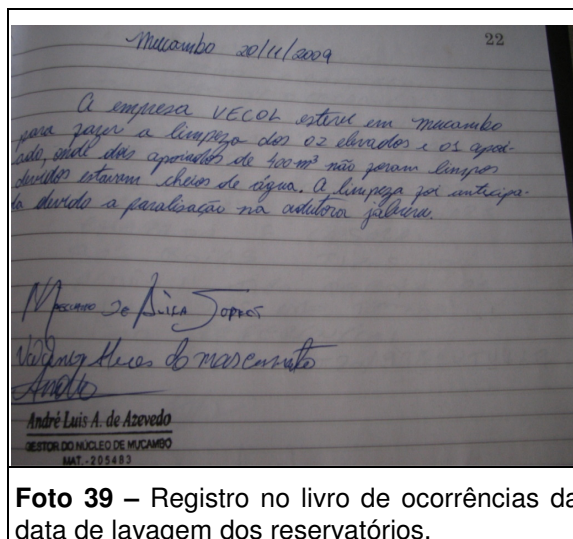 Mucambo 20/11/2009
22
A empresa VECOL esteve em mucambo
para fazer a limpeza dos 02 elevados e 01 apoi-
ado, onde dois apoiados de 400m³ não foram limpos
devidos estarem cheios de água. A limpeza foi antecipa-
da devido a paralisação na adutora jaburu.
de Ávila
Alves do nascimento
André Luis A. de Azevedo
GESTOR DO NÚCLEO DE MUCAMBO
MAT.-205483
Foto 39 – Registro no livro de ocorrências da
data de lavagem dos reservatórios.